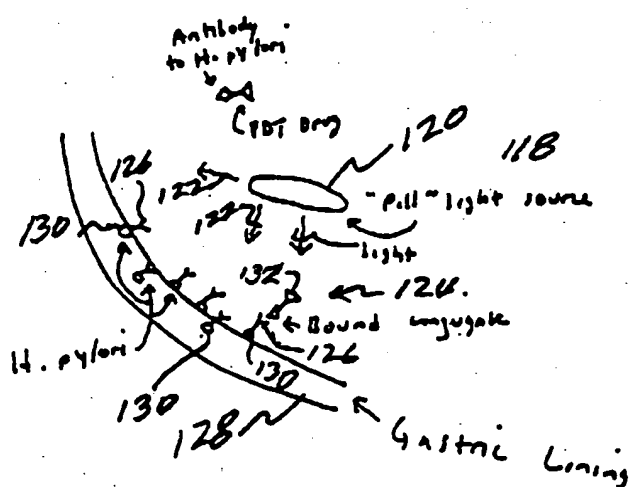 Antibody
to H. pylori
PDT Drug
120
118
126
122
"Pill" light source
130
122
light
132
124.
Bound conjugate
H. pylori
126
130
130
128
Gastric Lining